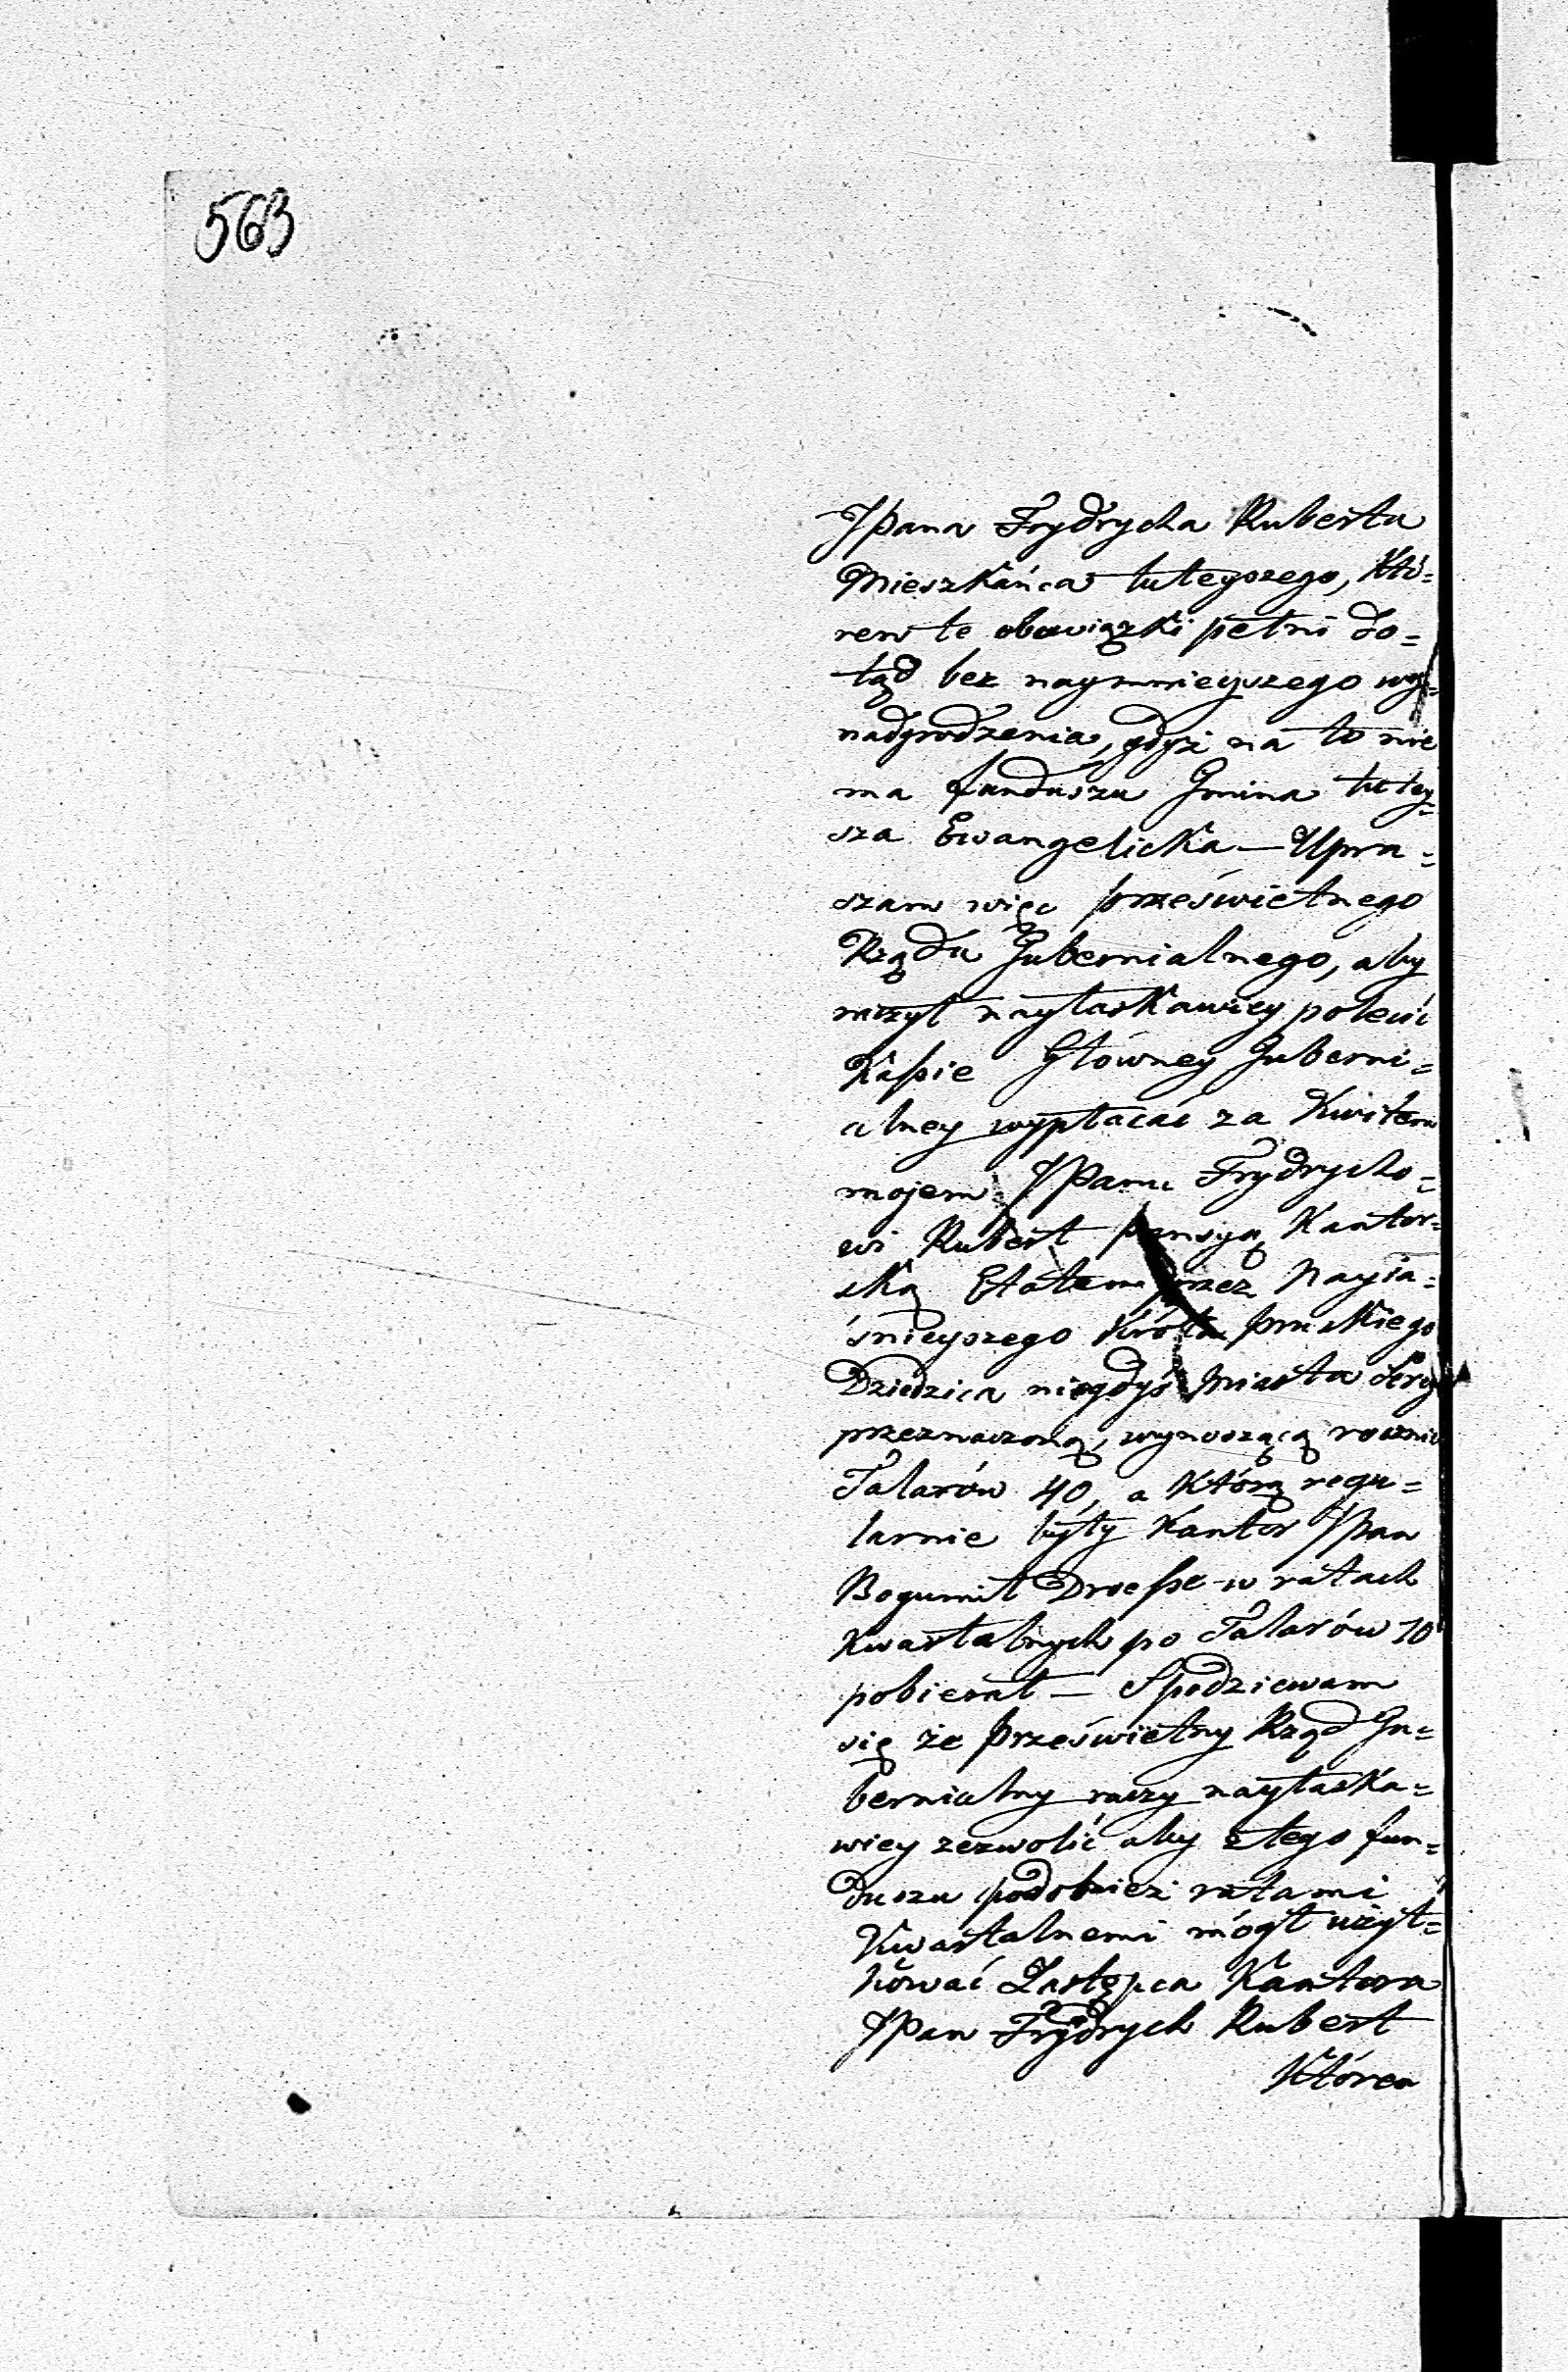 563
JPana Frydrycha Ruberta
Mieszkańca tuteyszego, Któ=
ren te obowiązki pełni do=
tąd bez naymnieyszego wy=
nadgrodzenia, gdyż na to nie
ma funduszu Gmina tutey=
sza Ewangelicka — Upra=
szam więc prześwietnego
Rządu Gubernialnego, aby
raczył nayłaskawiey polecić
Kaſsie Główney Guberni=
alney wypłacać za Kwitem
mojem JPanu Frydrycho=
wi Rubert pensyą Kantor=
ską Etatem przez Nayia=
śnieyszego Króla pruskiego
Dziedzica niegdyś Miasta
przeznaczoną, wynoszącą rocznie
Talarów 40, a Którą regu=
larnie były Kantor JPan
Bogumił Droeſse w ratach
Kwartalnych po Talarów 10
pobierał — Spodziewam
się że prześwietny Rząd Gu=
bernialny raczy nayłaska=
wiey zezwolić aby z tego fun=
duszu podobnież ratami
Kwartalnemi mógł użyt=
kować Zastępca Kantora
JPan Frydrych Rubert
Któren